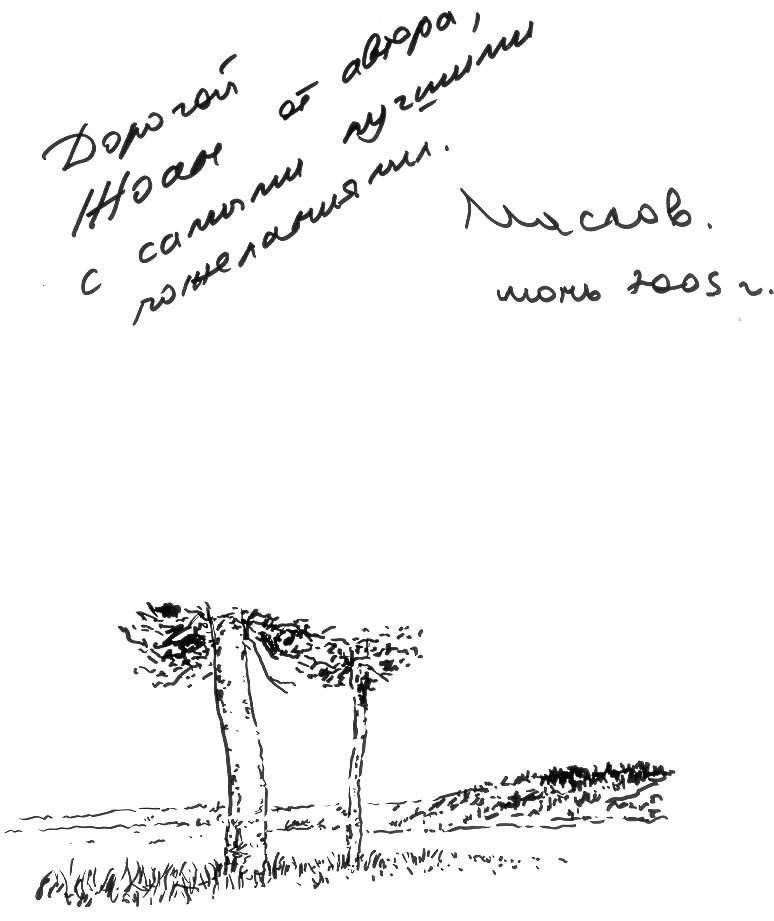 Дорогой
Жоан от автора,
с самыми лучшими
пожеланиями.
Маслов.
июнь 2005 г.